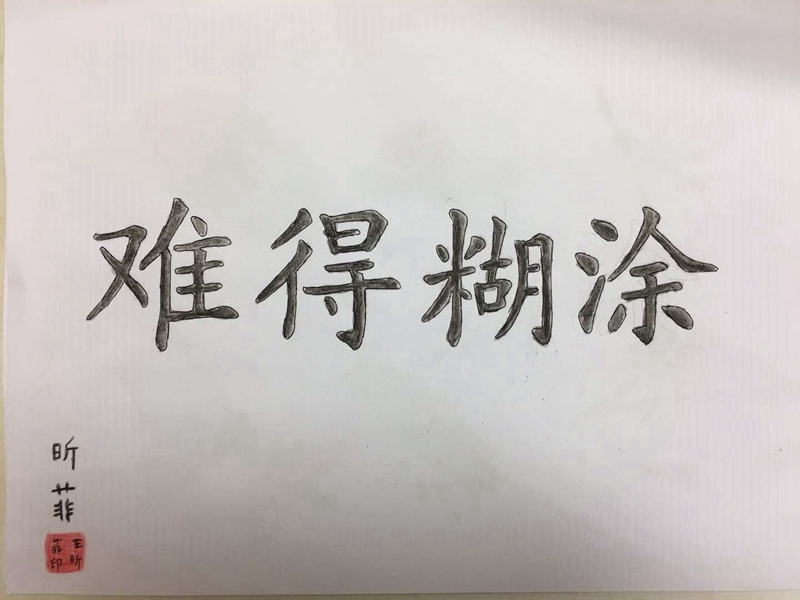 难得糊涂
昕
菲
王昕
菲印